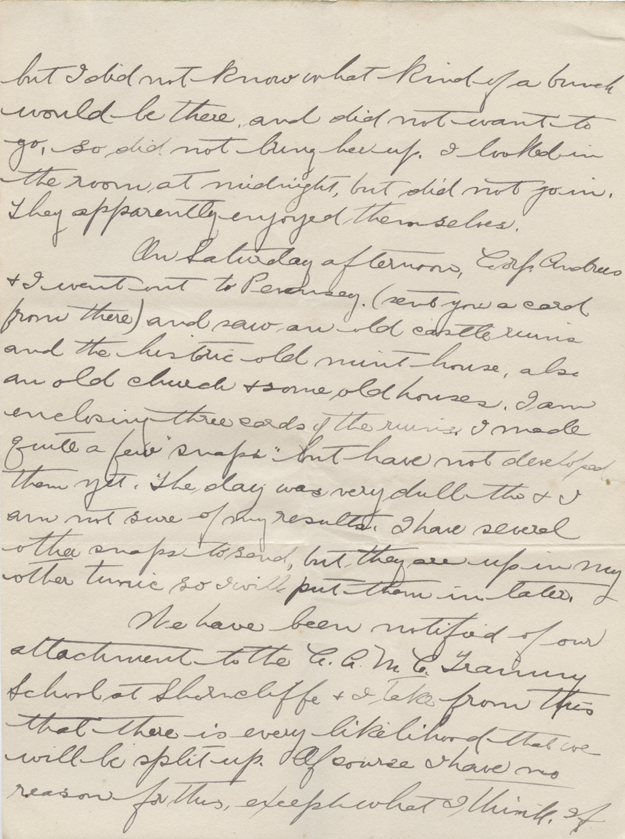 but I did not know what kind of a bunch
would be there, and did not want to
go, so did not bring her up. I looked in
the room, at midnight, but did not go in.
They apparently enjoyed themselves.
On Saturday afternoon, Corp. Andrews
& I went out to Pevensey. (sent you a card
from there) and saw an old castle ruins
and the historic old mint house, also
an old church & some old houses. I am
enclosing three cards of the ruins. I made
quite a few "snaps" but have not developed
them yet. The day was very dull tho & I
am not sure of my results. I have several
other snaps to send, but they are up in my
other tunic so I will put them in later.
We have been notified of our
attachment to the C.A.M.C. Training
School at Shorncliffe & I take from this
that there is every likelihood that we
will be split up. Of course I have no
reason for this, except what I think. If